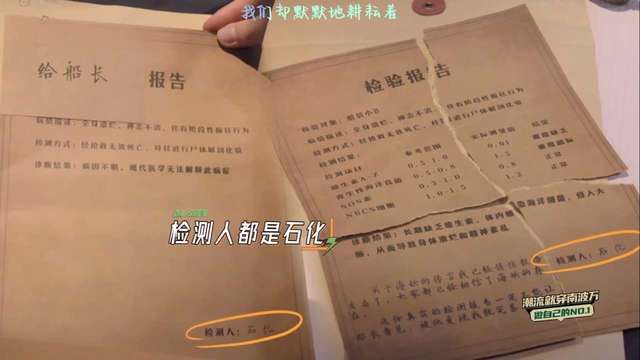 我们却默默地耕耘着
给船长 报告
病情描述：全身溃烂、神志不清，伴有阶段性癫狂行为
检测方式：经抢救无效死亡，对其进行尸体解剖化验
诊断结果：病因不明，现代医学无法解释此病症
检测人：石化
检验报告
病情描述：全身溃烂、神志不清，伴有阶段性癫狂行为
检测方式：经抢救无效死亡，对其进行尸体解剖化验
检测结果：
检测项目 参考范围 实际测量值 结果
维生素A-Z 0.5-1.0 0.01
0.5-1.0 1.5
SOS素 0.3-1.0 0.8 正常
NBCS细胞 1.0-1.5 1.2 正常
诊断结果：长期缺乏维生素，体内感染海洋细菌，侵入大
脑，从而导致身体溃烂和精神紊乱
检测人：石化
检测人都是石化
潮流就穿南波万
做自己的NO.1